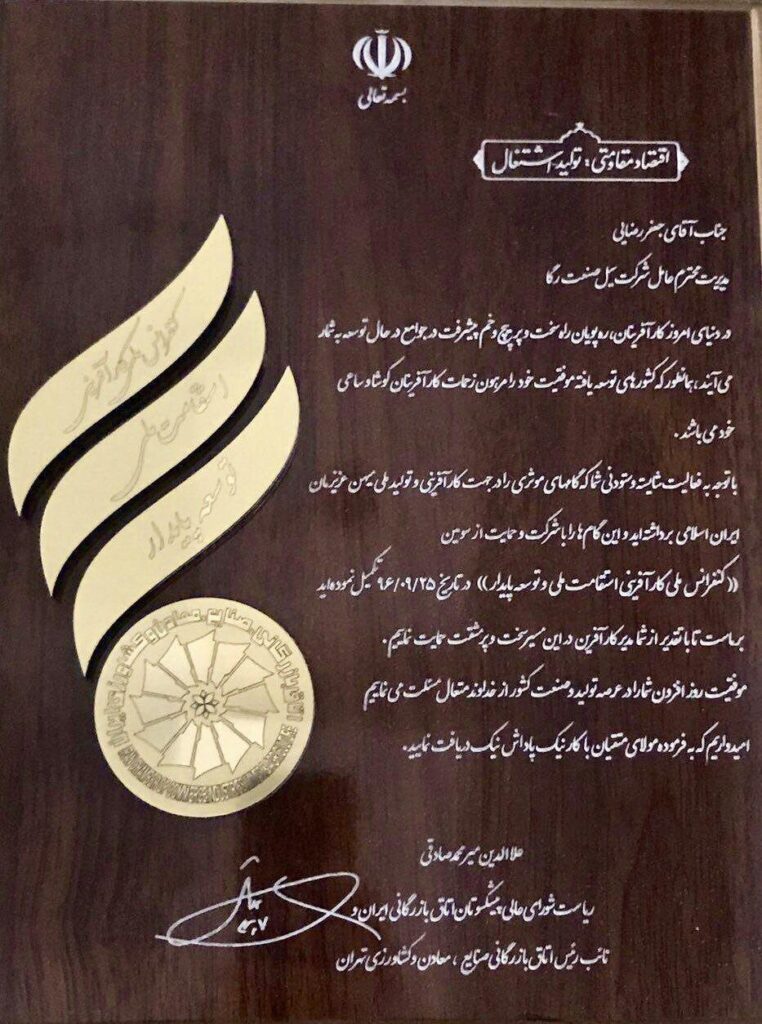 بسمه تعالی
اقتصاد مقاومتی؛ تولید، اشتغال
جناب آقای جعفر رضایی
مدیریت محترم عامل شرکت سیل صنعت رگا
در دنیای امروز کارآفرینان، ره پویان راه سخت و پر پیچ و خم پیشرفت در جوامع در حال توسعه به شمار
می آیند، همانطور که کشورهای توسعه یافته موفقیت خود را مرهون زحمات کارآفرینان کوشا و ساعی
خود می باشند.
با توجه به فعالیت شایسته و ستودنی شما که گامهای موثری را در جهت کارآفرینی و تولید ملی میهن عزیزمان
ایران اسلامی برداشته اید و این گام ها را با شرکت و حمایت از سومین
((کنفرانس ملی کارآفرینی استقامت ملی و توسعه پایدار)) در تاریخ ۹۶/۰۹/۲۵ تکمیل نموده اید
بر ماست تا با تقدیر از شما مدیر کارآفرین در این مسیر سخت و پر مشقت حمایت نماییم.
موفقیت روز افزون شما را در عرصه تولید و صنعت کشور از خداوند متعال مسئلت می نماییم
امیدواریم که به فرموده مولای متقیان با کار نیک پاداش نیک دریافت نمایید.
کنفرانس ملی کارآفرینی
استقامت ملی
توسعه پایدار
علاالدین میر محمد صادقی
ریاست شورای عالی پیشکسوتان اتاق بازرگانی ایران و
نائب رئیس اتاق بازرگانی صنایع، معادن و کشاورزی تهران